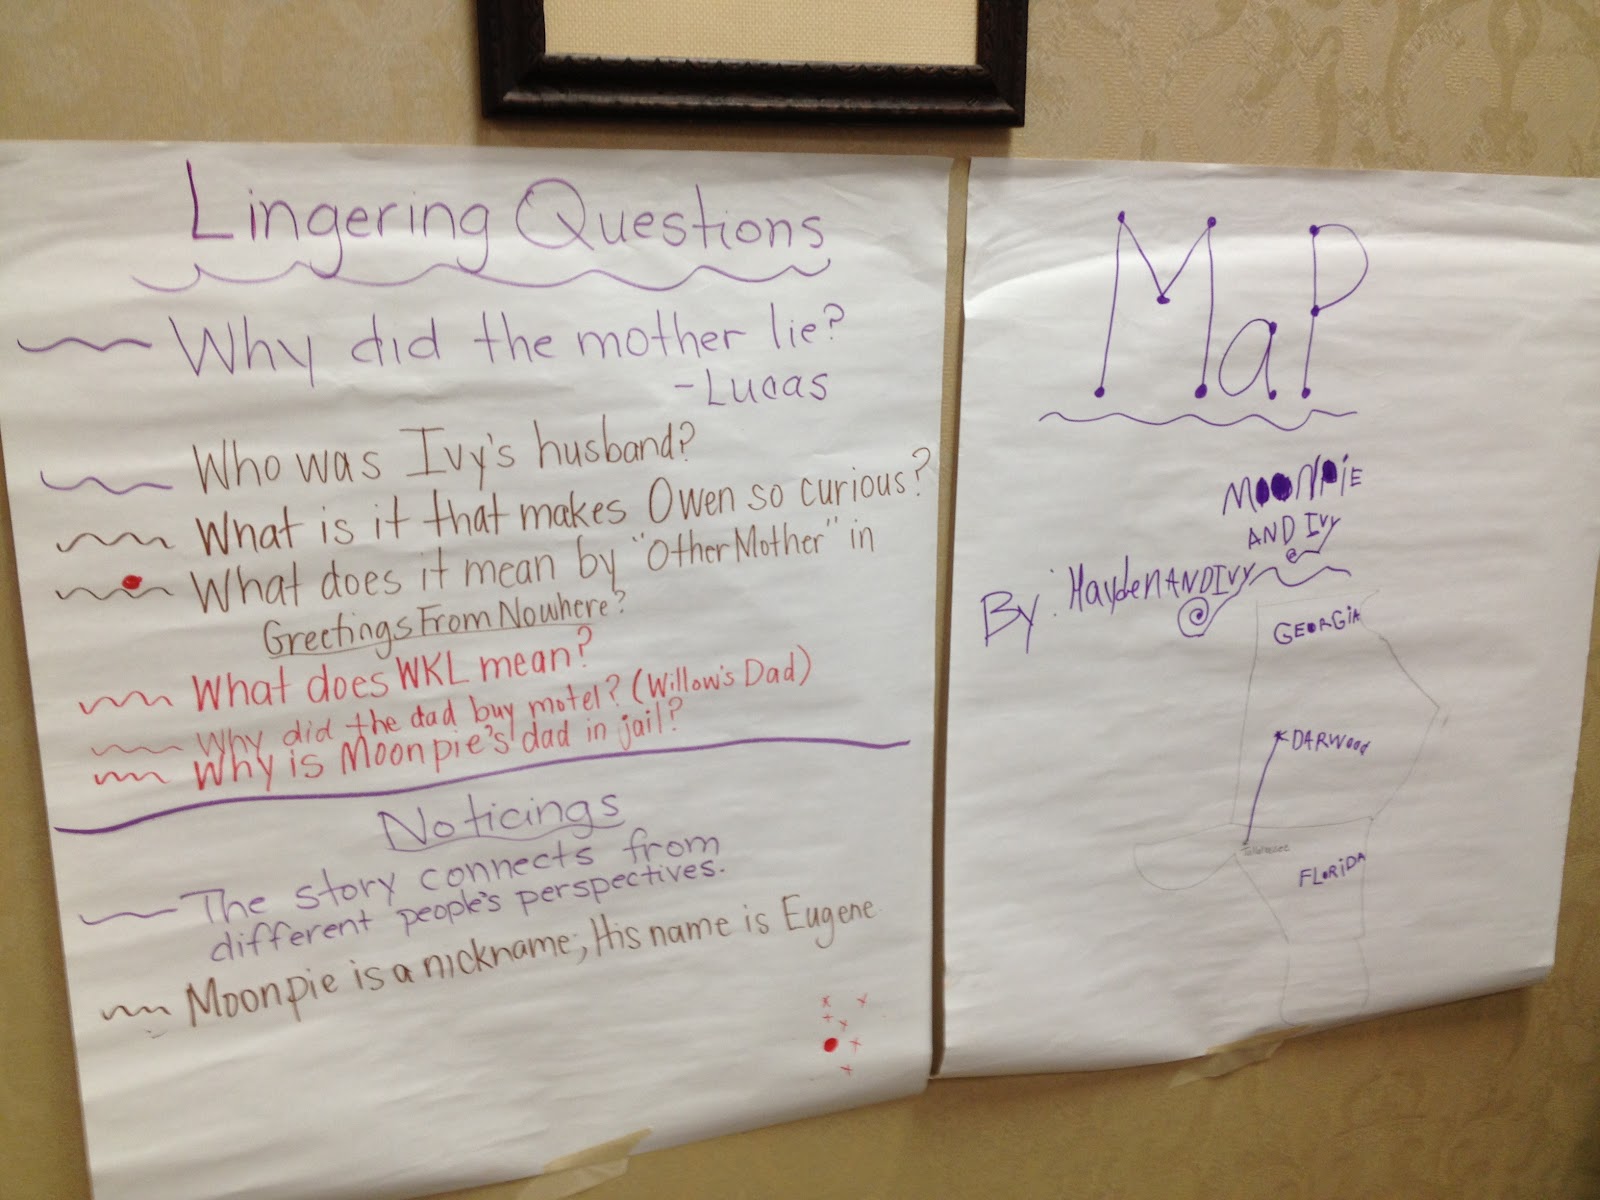 Lingering Questions
Why did the mother lie?
-Lucas
Who was Ivy's husband?
What is it that makes Owen so curious?
What does it mean by "Other Mother" in
Greetings From Nowhere?
What does WKL mean?
Why did the dad buy motel? (Willow's Dad)
Why is Moonpie's dad in jail?
Noticings
The story connects from
different people's perspectives.
Moonpie is a nickname; His name is Eugene
MaP
MOONPiE
AND IVY
By: Hayden AND IVY
GEORGiA
DARWood
Tallahassee
FLORiDA